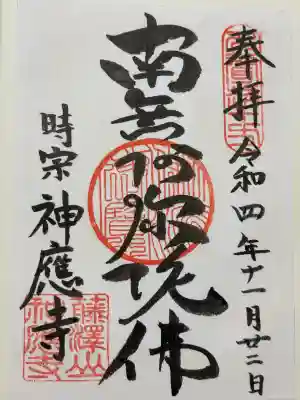 奉拝 令和四年十一月廿二日
南無阿弥陀佛
時宗 神應寺
藤澤山